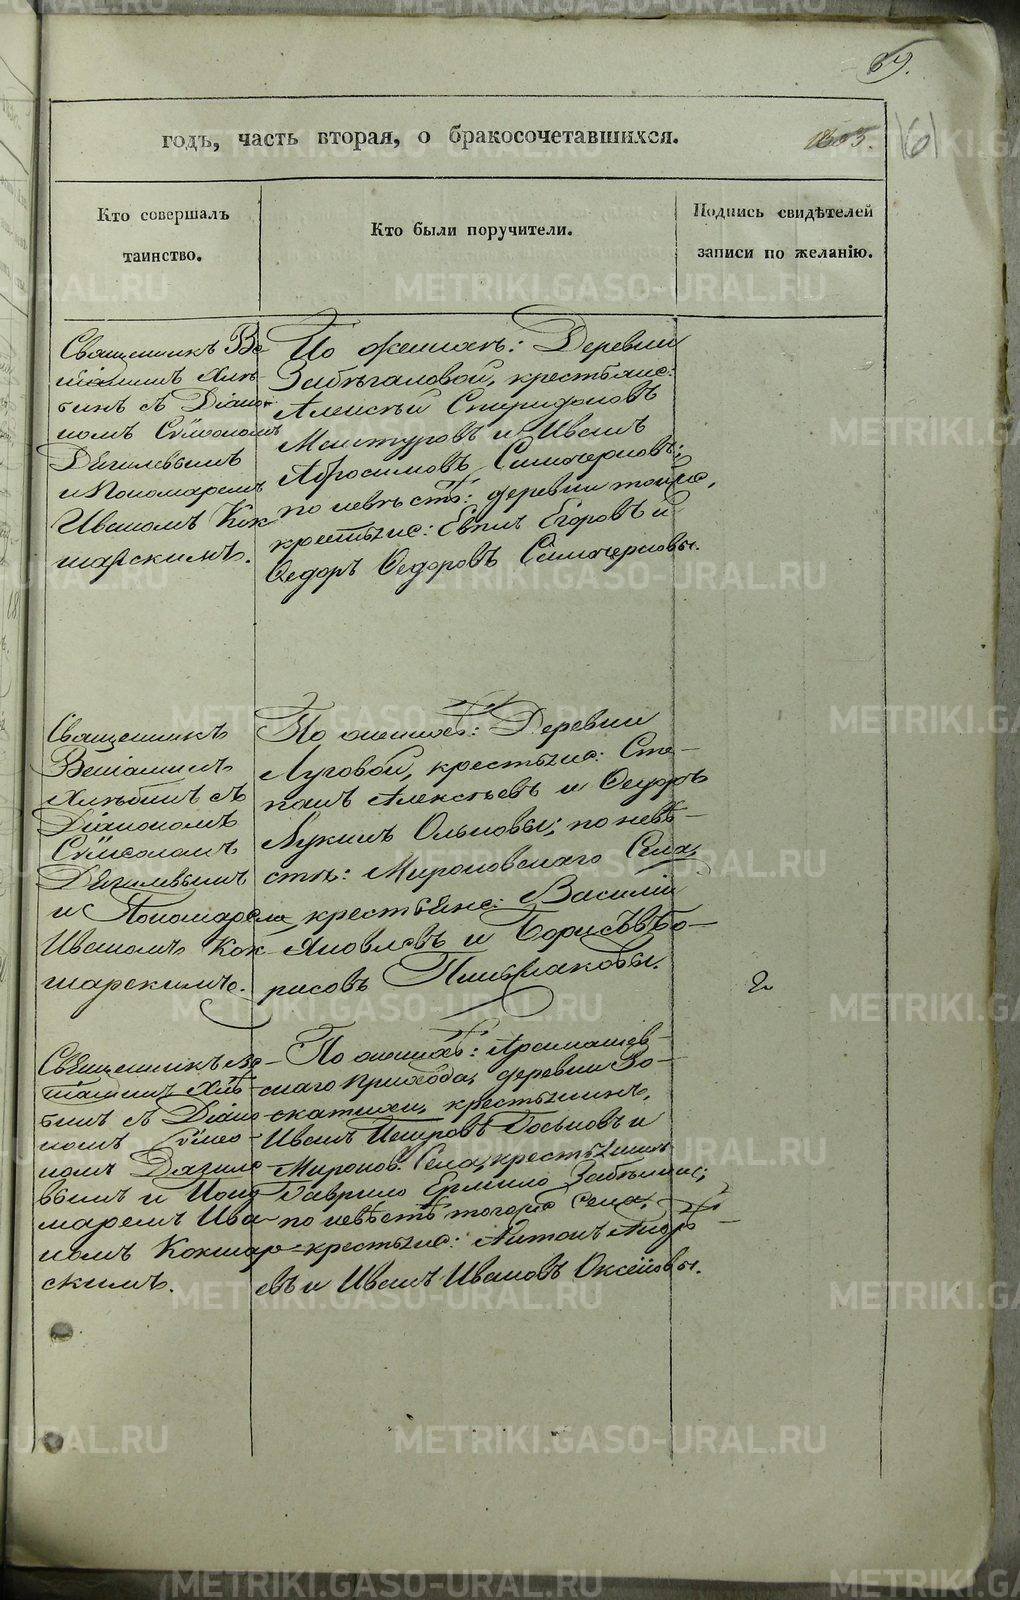 69.
годъ, часть вторая, о бракосочетавшихся.
Кто совершалъ
таинство.
Кто были поручители.
Подпись свидѣтелей
записи по желанію.
Священникъ Ве
ніаминъ Хлѣ-
бинъ съ Діако-
номъ Сѵмеономъ
Дягилевымъ
и Пономаремъ
Иваномъ Кок
шарскимъ.
По женихѣ: Деревни
крестьяне:
Алексѣй Спиридоновъ
Мантуровъ и Иванъ
Абросимовъ Синочерновъ;
по невѣстѣ: деревни тойже,
крестьяне: Егоровъ и
Ѳедоръ Ѳедоровъ Синочерновы.
Священникъ
Веніаминъ
Хлѣбинъ съ
Діакономъ
Сѵмеономъ
Дягилевымъ
и Пономаремъ
Иваномъ Кок
шарскимъ.
По женихѣ: Деревни
Луговой, крестьяне: Сте-
панъ Алексѣевъ и Ѳедоръ
Лукинъ Ольковы; по невѣ-
стѣ: Мироновскаго Села,
крестьяне: Василій
Яковлевъ и Борисъ Бо-
рисовъ
Священникъ Ве-
ніаминъ Хлѣ-
бинъ съ Діако
номъ Сѵмео-
номъ Дягиле
вымъ и Поно
маремъ Ива-
номъ Кокшар
скимъ.
По женихѣ: Арамашев-
скаго прихода, деревни
крестьянинъ,
Иванъ и
Миронов. Села, крестьянинъ
Гаврило
по невѣстѣ тогоже Села,
крестьяне: Антонъ Андрѣ
евъ и Иванъ Ивановъ Оксёновы.
METRIKI.GASO-URAL.RU